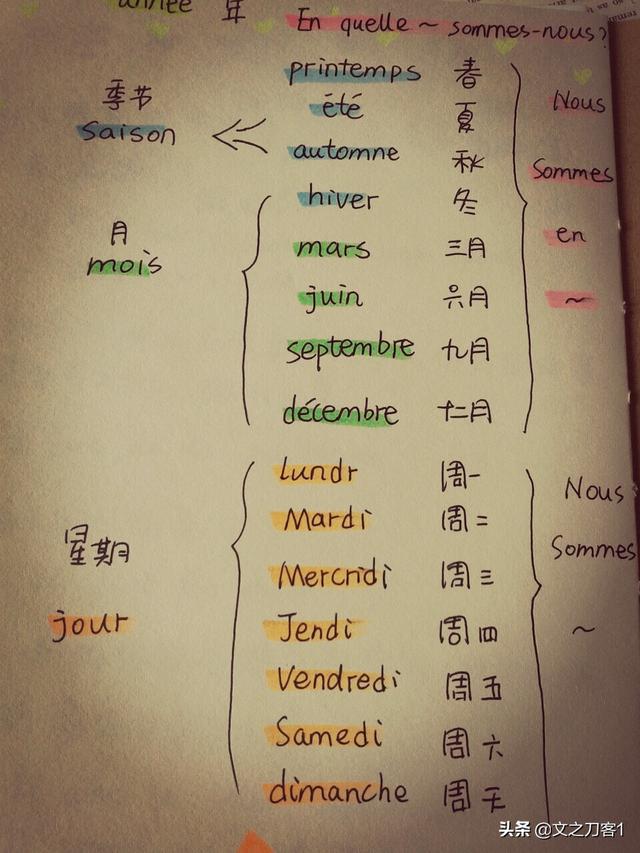 année 年 En quelle ~ sommes-nous?
printemps 春
季节 été 夏 Nous
saison automne 秋 Sommes
hiver 冬
月 mars 三月 en
mois juin 六月 ~
septembre 九月
décembre 十二月
lundr 周一 Nous
Mardi 周二
星期 Mercridi 周三 Sommes
jour Jendi 周四 ~
Vendredi 周五
Samedi 周六
dimanche 周天
头条 @文之刀客1